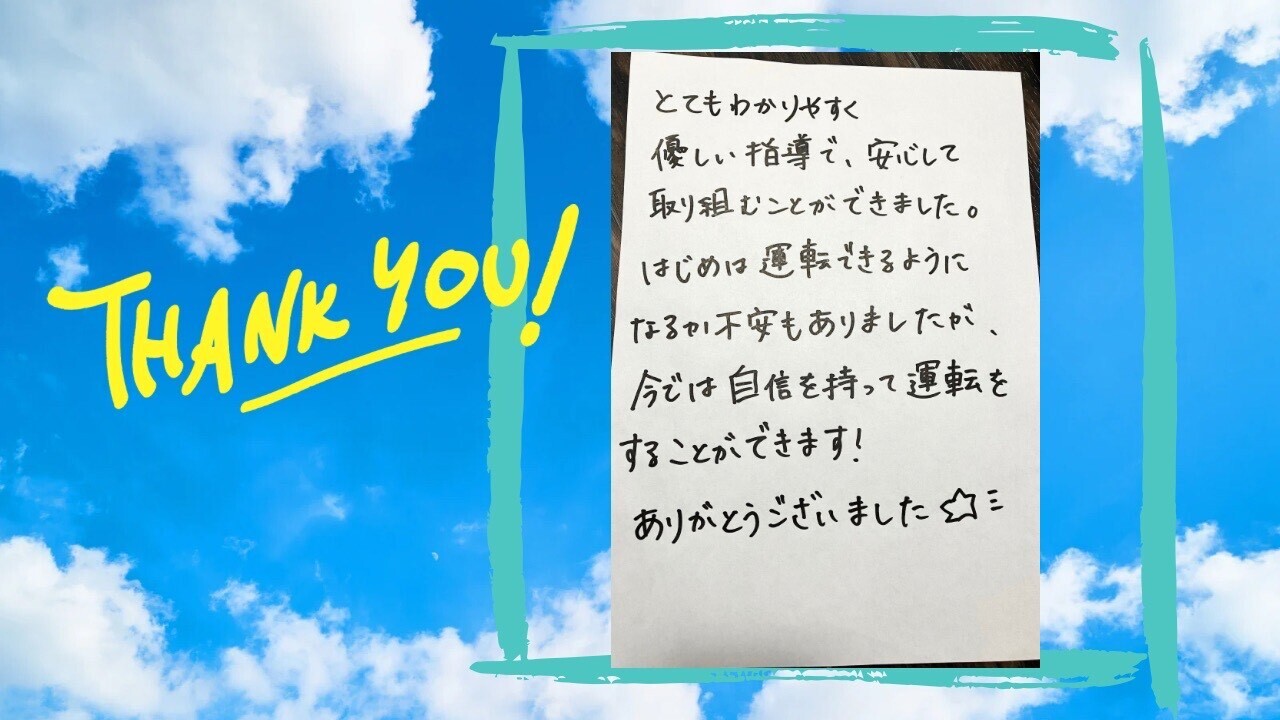 THANK YOU!
とてもわかりやすく
優しい指導で、安心して
取り組むことができました。
はじめは運転できるように
なるか不安もありましたが、
今では自信を持って運転を
することができます!
ありがとうございました☆ミ